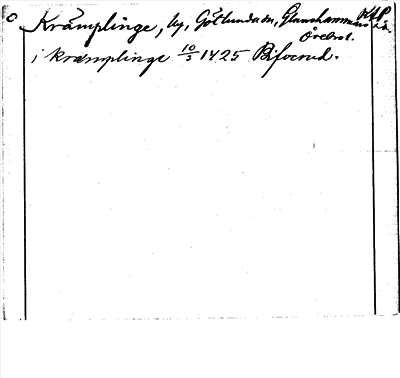 Krämplinge, by, Götlunda sn, Glanshammars hd
Örebro l.
i kræmplinge 10/3 1425 Bifoerud.